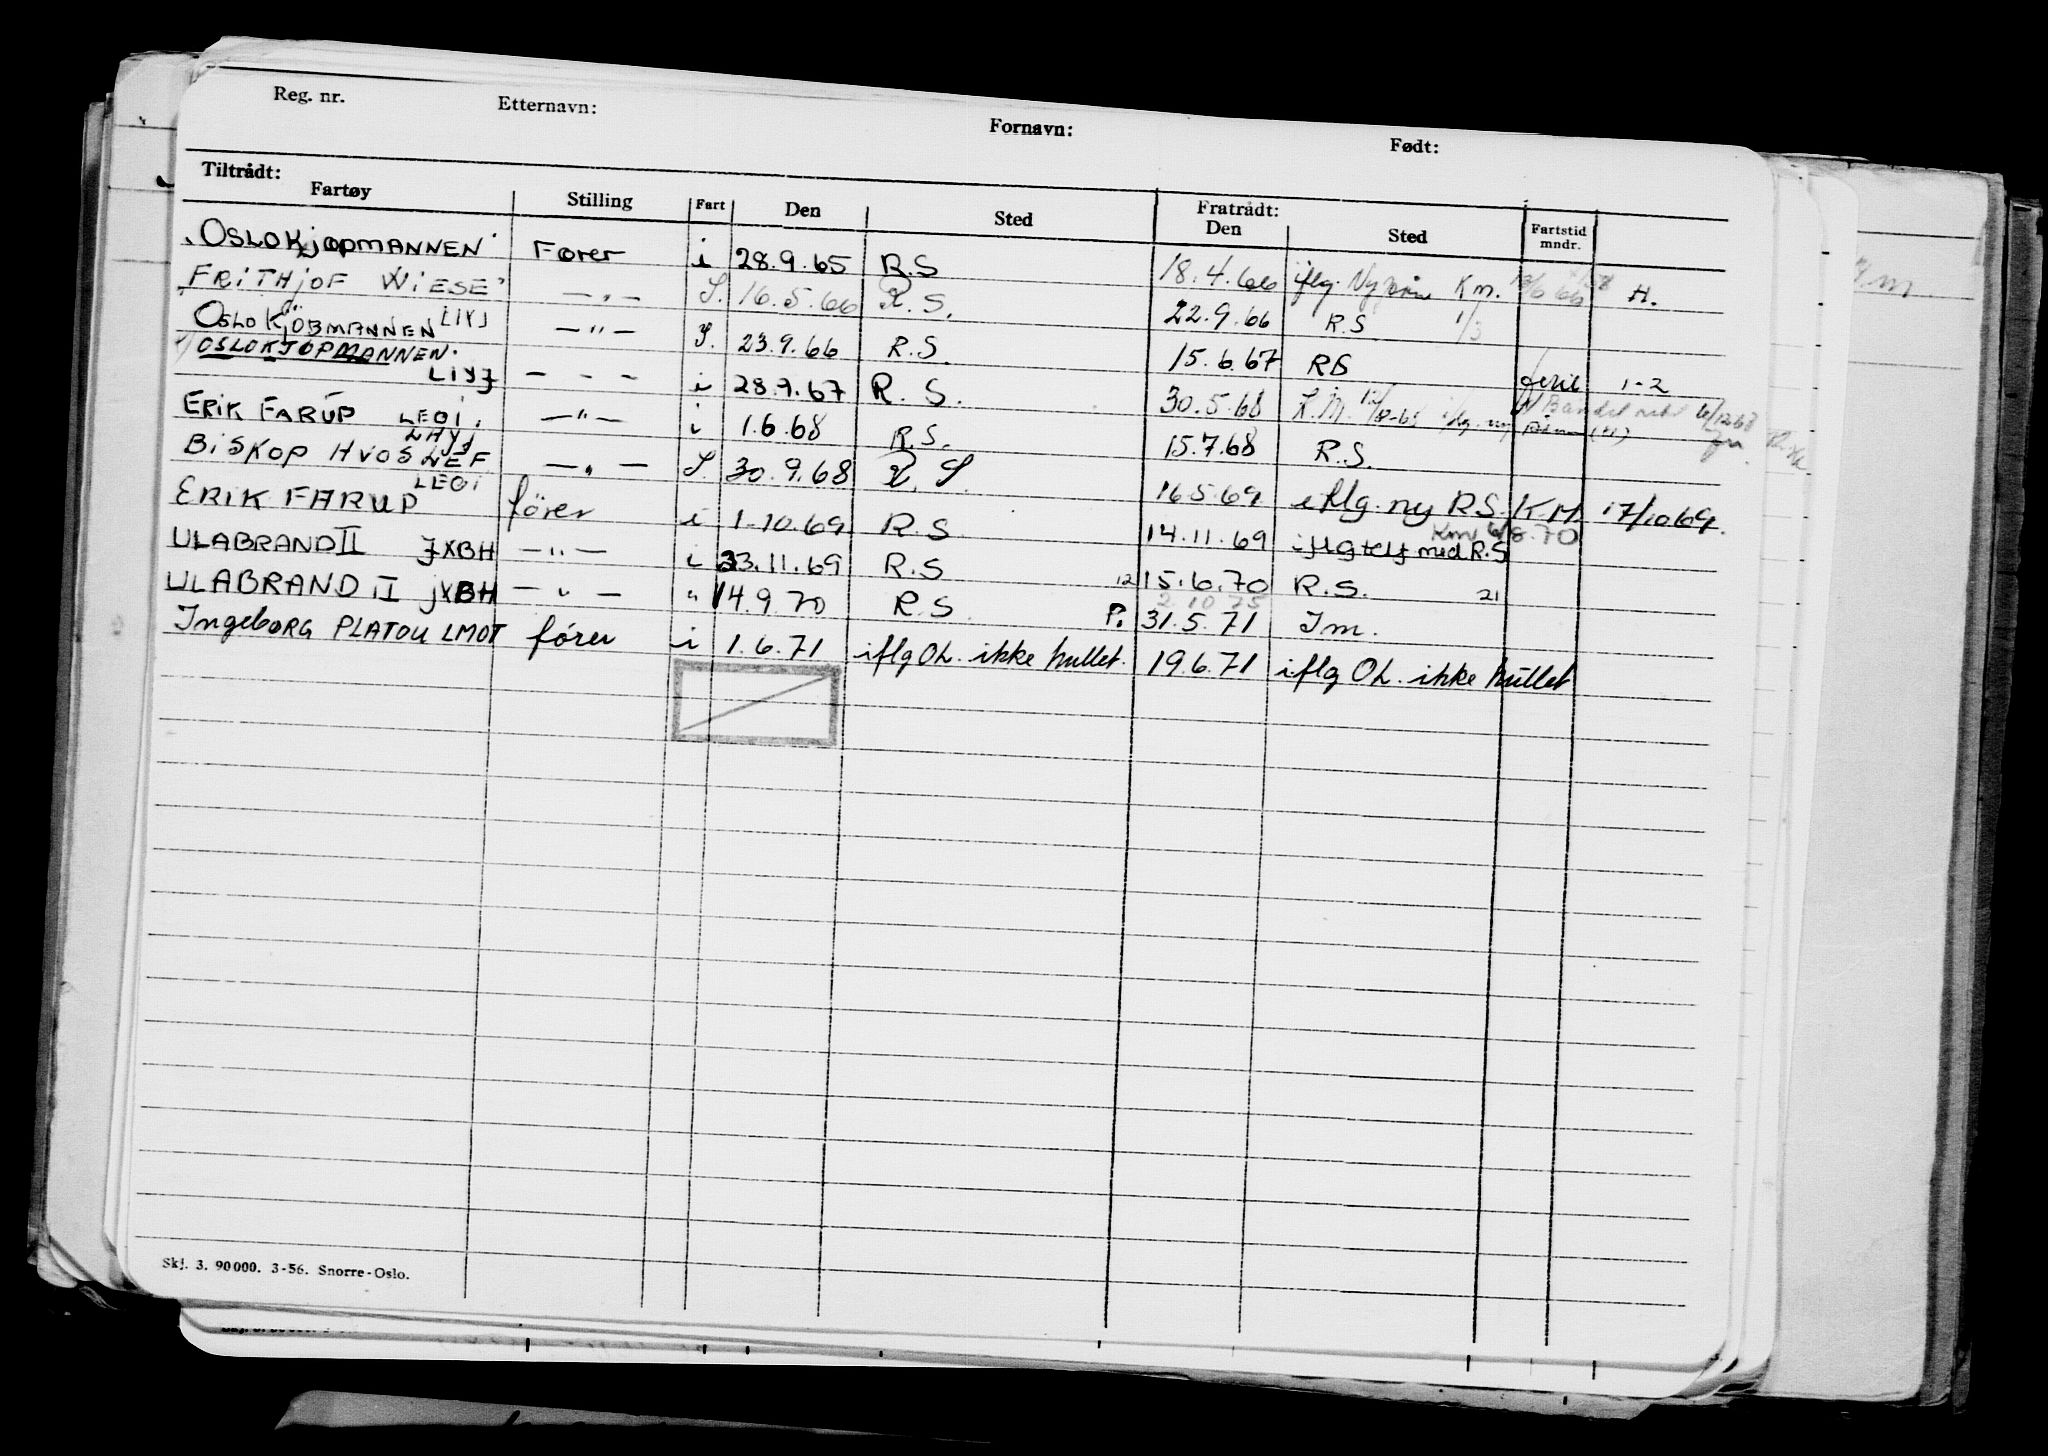 Reg. nr. Etternavn: Fornavn: Født:
Tiltrådt: Fratrådt:
Fartøy Stilling Fart Den Sted Den Sted Fartstid mndr.
"OSLOKJØPMANNEN" Fører i 28.9.65 R.S 18.4.66 iflg. Ny Km. H.
"FRITHJOF WIESE" —"— S. 16.5.66 R.S. 22.9.66 R.S 1/3
OSLO KJÖBMANNEN LIYJ —"— S. 23.9.66 R.S. 15.6.67 RS ferie 1-2
"OSLOKJØPMANNEN" LIYJ — - — i 28.7.67 R.S. 30.5.68
ERIK FARUP LEOI. —"— i 1.6.68 R.S. 15.7.68 R.S.
BISKOP HVOSLEF LAYJ —"— S. 30.9.68 R.S. 16.5.69 iflg. ny R.S. K.M. 17/10 69.
ERIK FARUP LEOI förer i 1.10.69 R.S. 14.11.69 iflg tlf med R.S Km 6/8.70
ULABRAND II JXBH —"— i 23.11.69 R.S 12 15.6.70 R.S. 21
ULABRAND II JXBH —"— " 14.9.70 R.S P. 31.5.71 Im.
2 10 75
IngebORG PLATOU LMOT förer i 1.6.71 iflg OL. ikke hullet. 19.6.71 iflg OL. ikke hullet
Skj. 3. 90000. 3-56. Snorre-Oslo.